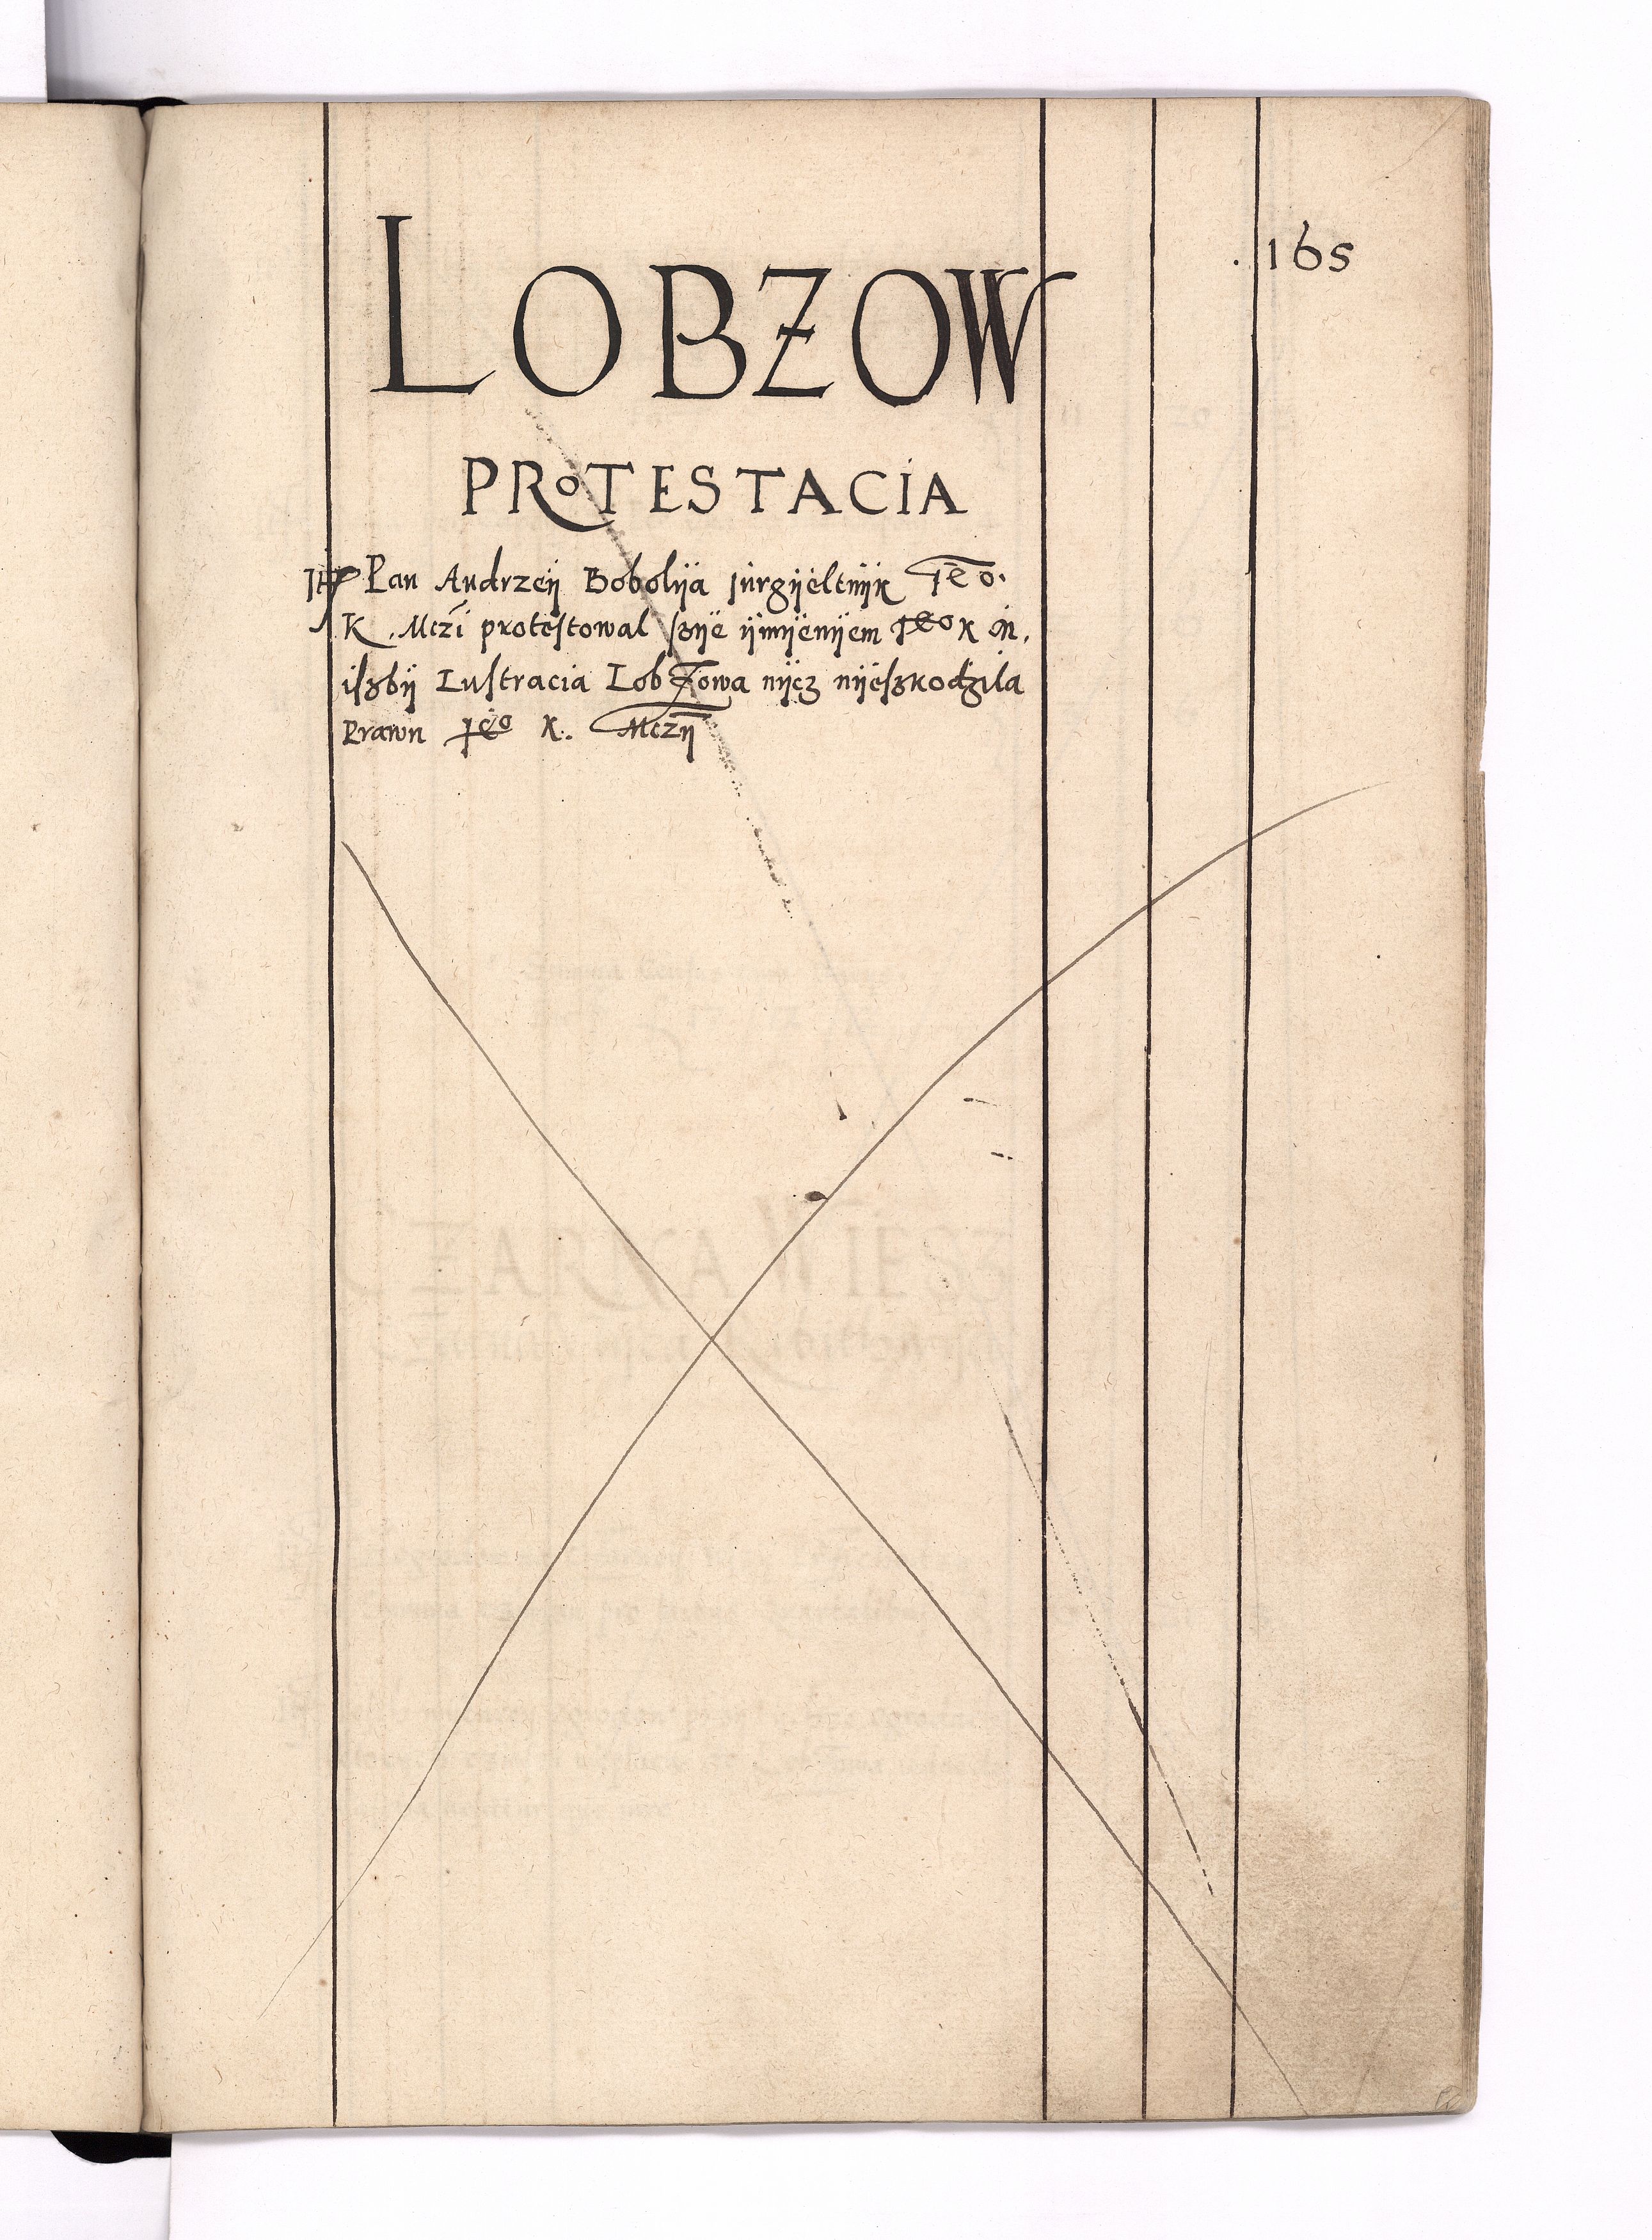 165
LOBZOW
PROTESTACIA
Pan Andrzeÿ Bobolÿa jurgÿeltnÿk Jeo.
K. Mczi protestowal szÿe ÿmÿenÿem Jeo K M.
iszbÿ Lustracia Lobzowa nÿcz nÿeszkodzila
Prawu Jeo K. Mczÿ